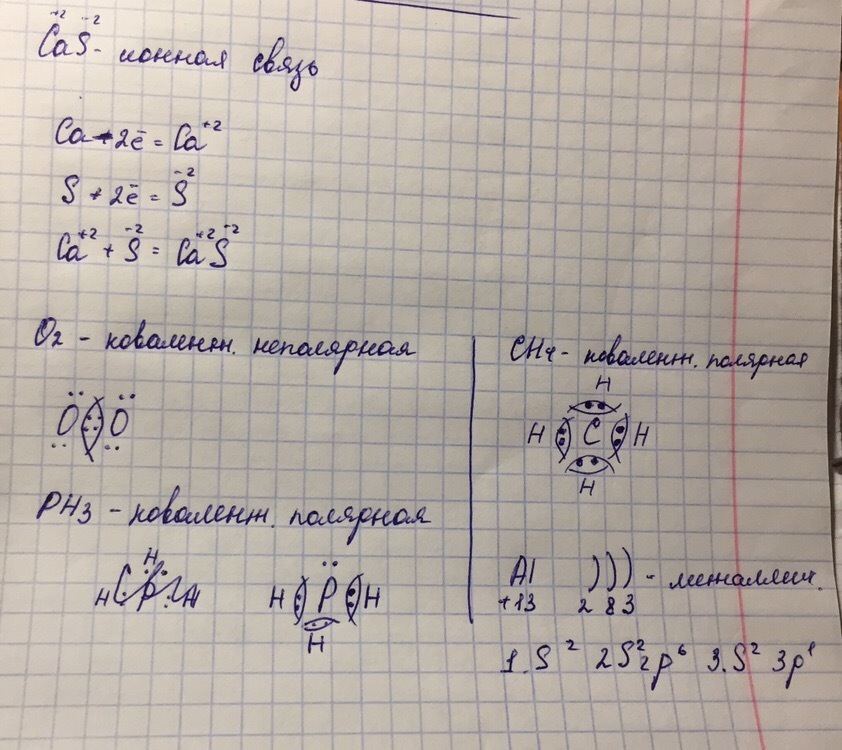 Ca⁺²S⁻² - ионная связь
Ca - 2ē = Ca⁺²
S + 2ē = S⁻²
Ca⁺² + S⁻² = Ca⁺²S⁻²
O₂ - ковалентн. неполярная
O O
PH₃ - ковалентн. полярная
H P H
H
CH₄ - ковалентн. полярная
H
H C H
H
Al ))) - металлич.
+13 2 8 3
1.S² 2S²2p⁶ 3.S² 3p¹